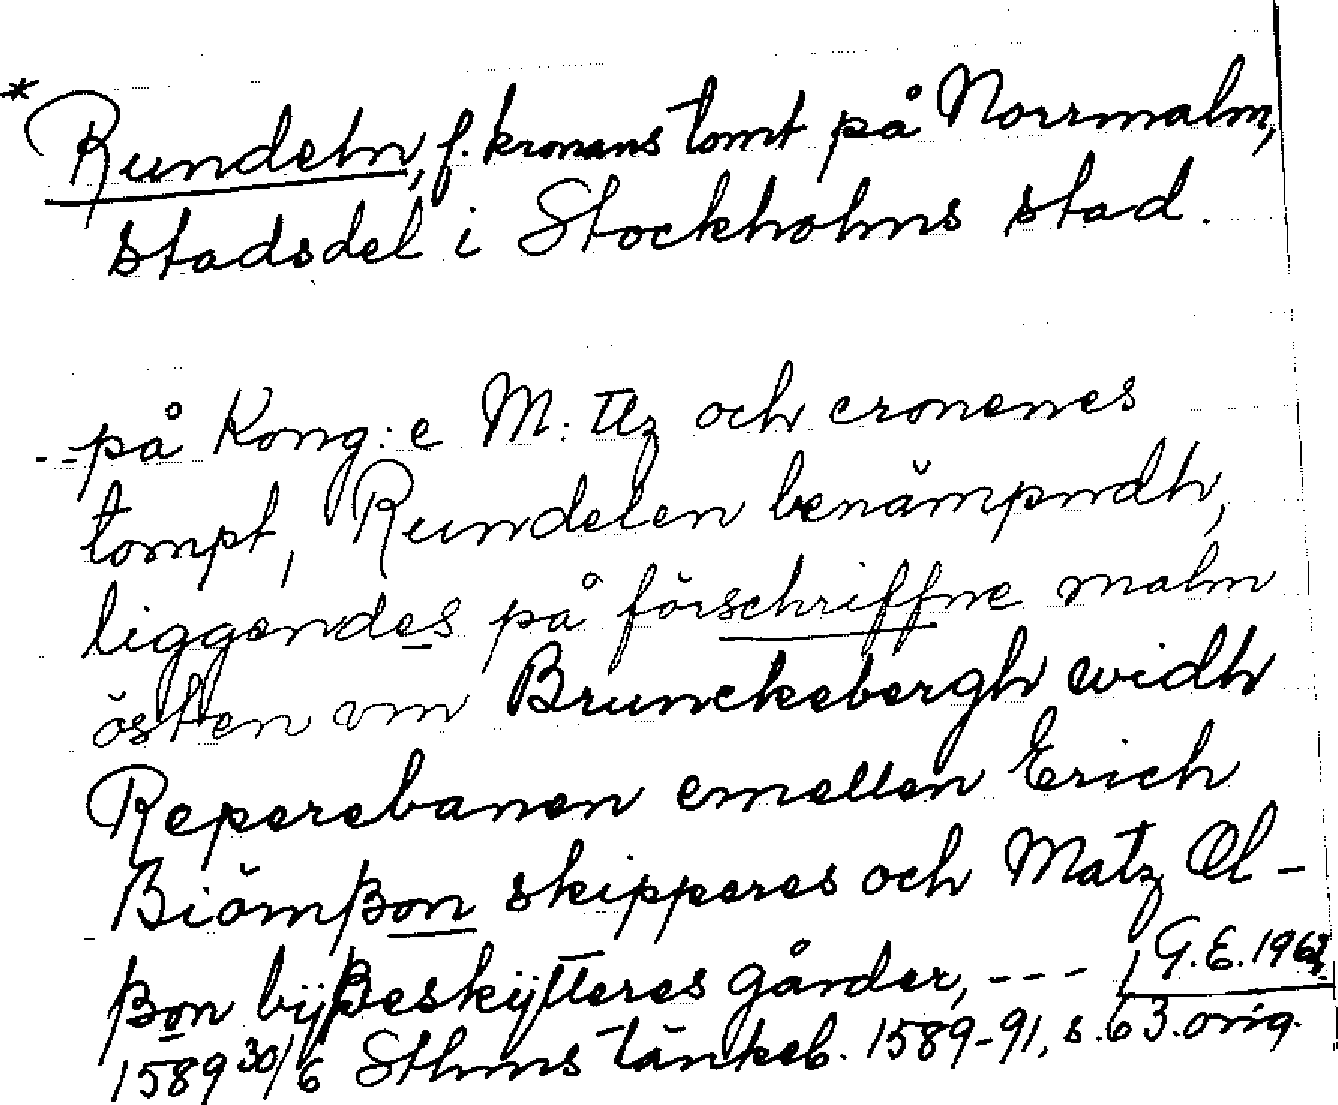 * Rundeln, f. kronans tomt på Norrmalm,
stadsdel i Stockholms stad.
- - på Kong: e M: tz och cronenes
tompt, Rundelen benämpndh,
liggendes på förschriffne malm
östen om Brunckebergh widh
Reperebanen emellen Erich
Biörnßon skipperes och Matz Ol-
ßon byßeskytteres gårder, - - -
G.E. 1962
1589 30/6 Sthms tänkeb. 1589-91, s. 63. orig.